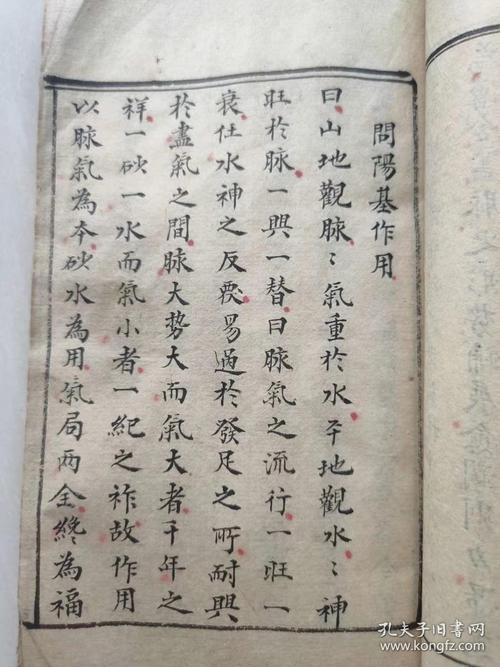 問陽基作用
曰山地觀脉〻氣重於水平地觀水〻神
旺於脉一興一替曰脉氣之流行一旺一
衰任水神之反覆易過於發足之所耐興
於盡氣之間脉大勢大而氣大者千年之
祥一砂一水而氣小者一紀之祚故作用
以脉氣為本砂水為用氣局兩全終為福
孔夫子旧书网
www.kongfz.com